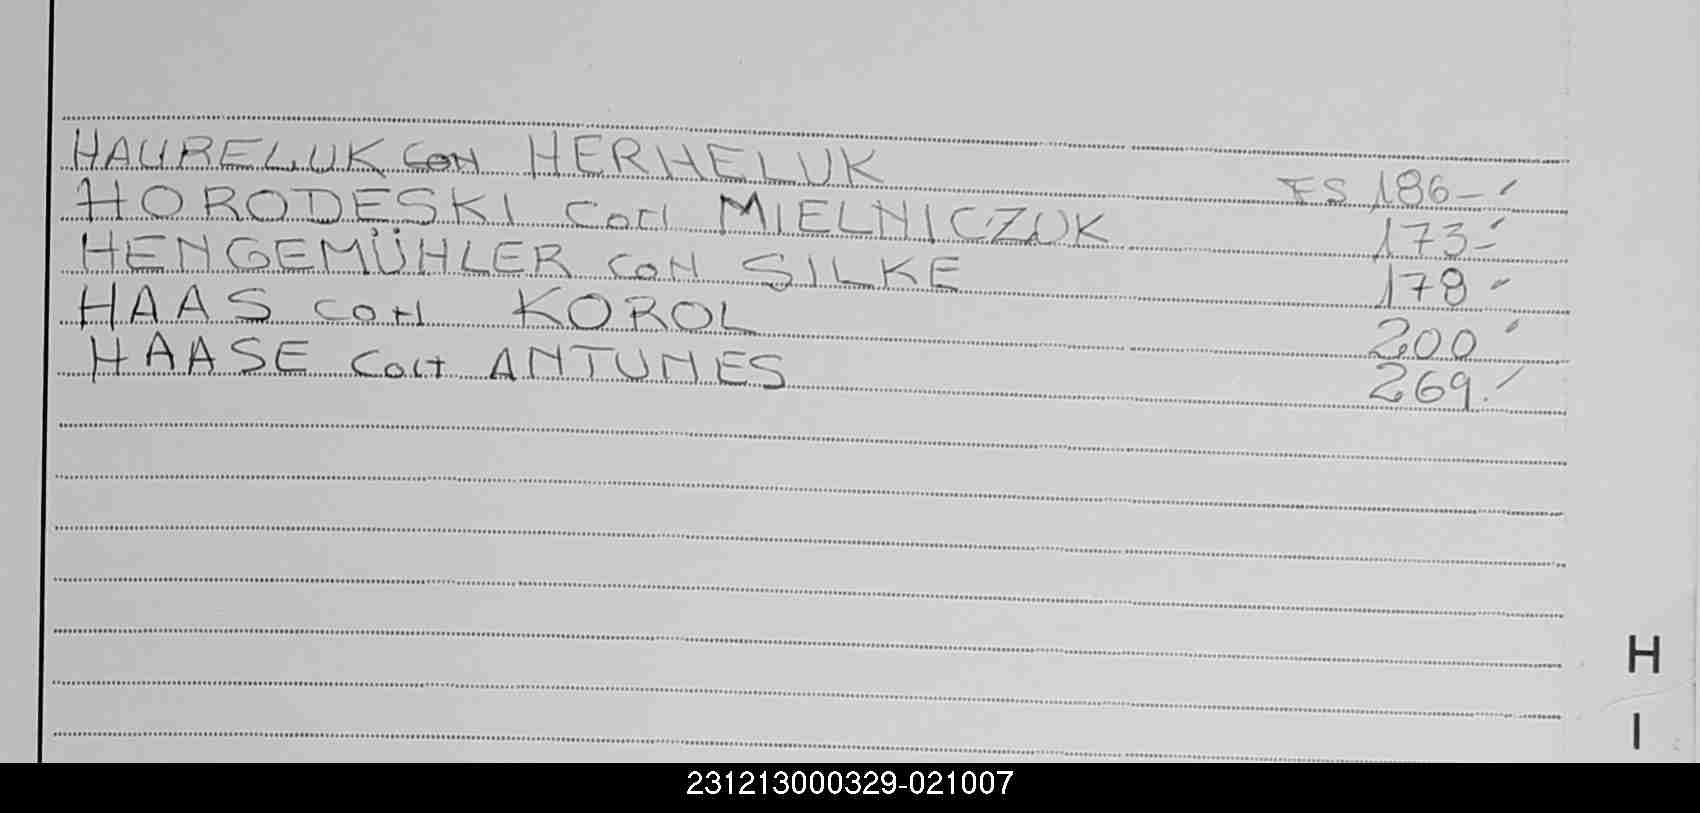 HAURELUK CON HERHELUK FS 186-
HORODESKI CON MIELNICZUK 173-
HENGEMÜHLER CON SILKE 178-
HAAS CON KOROL 200
HAASE CON ANTUNES 269.
H
I
231213000329-021007